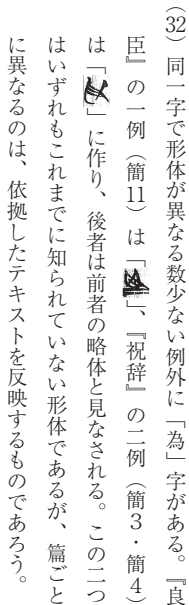 (32) 同一字で形体が異なる数少ない例外に「為」字がある。『良
臣』の一例（簡11）は「」、『祝辞』の二例（簡3・簡4）
は「」に作り、後者は前者の略体と見なされる。この二つ
はいずれもこれまでに知られていない形体であるが、篇ごと
に異なるのは、依拠したテキストを反映するものであろう。